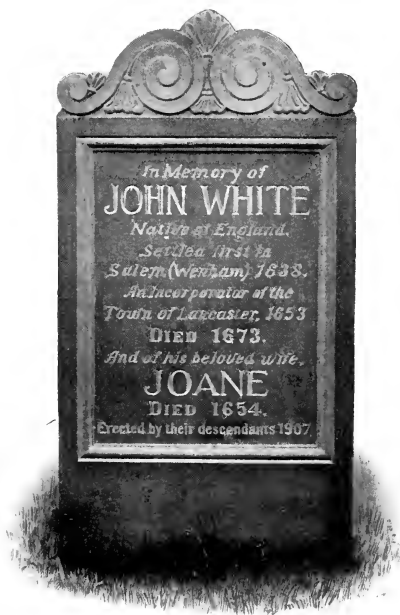 In Memory of
JOHN WHITE
Native of England.
Settled first in
Salem (Wenham) 1638.
An Incorporator of the
Town of Lancaster, 1653
DIED 1673.
And of his beloved wife,
JOANE
DIED 1654.
Erected by their descendants 1907